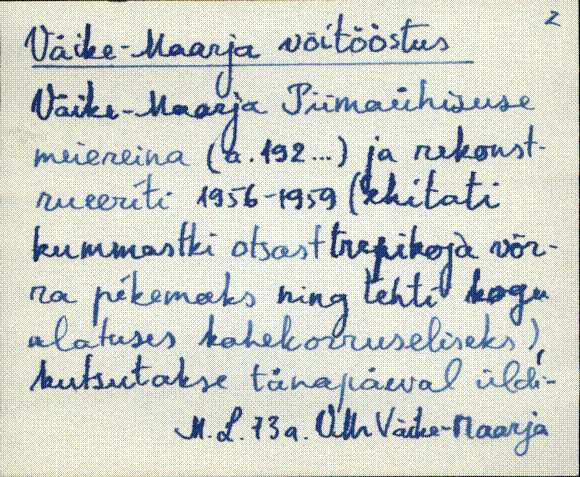 2
Väike-Maarja võitööstus
Väike-Maarja Piimaühisuse
meiereina (a. 192...) ja rekonst-
rueeriti 1956-1959 (ehitati
kummastki otsast trepikoja võr-
ra pikemaks ning tehti kogu
ulatuses kahekorruseliseks),
kutsutakse tänapäeval üldi-
M. L. 73 a. Väike-Maarja